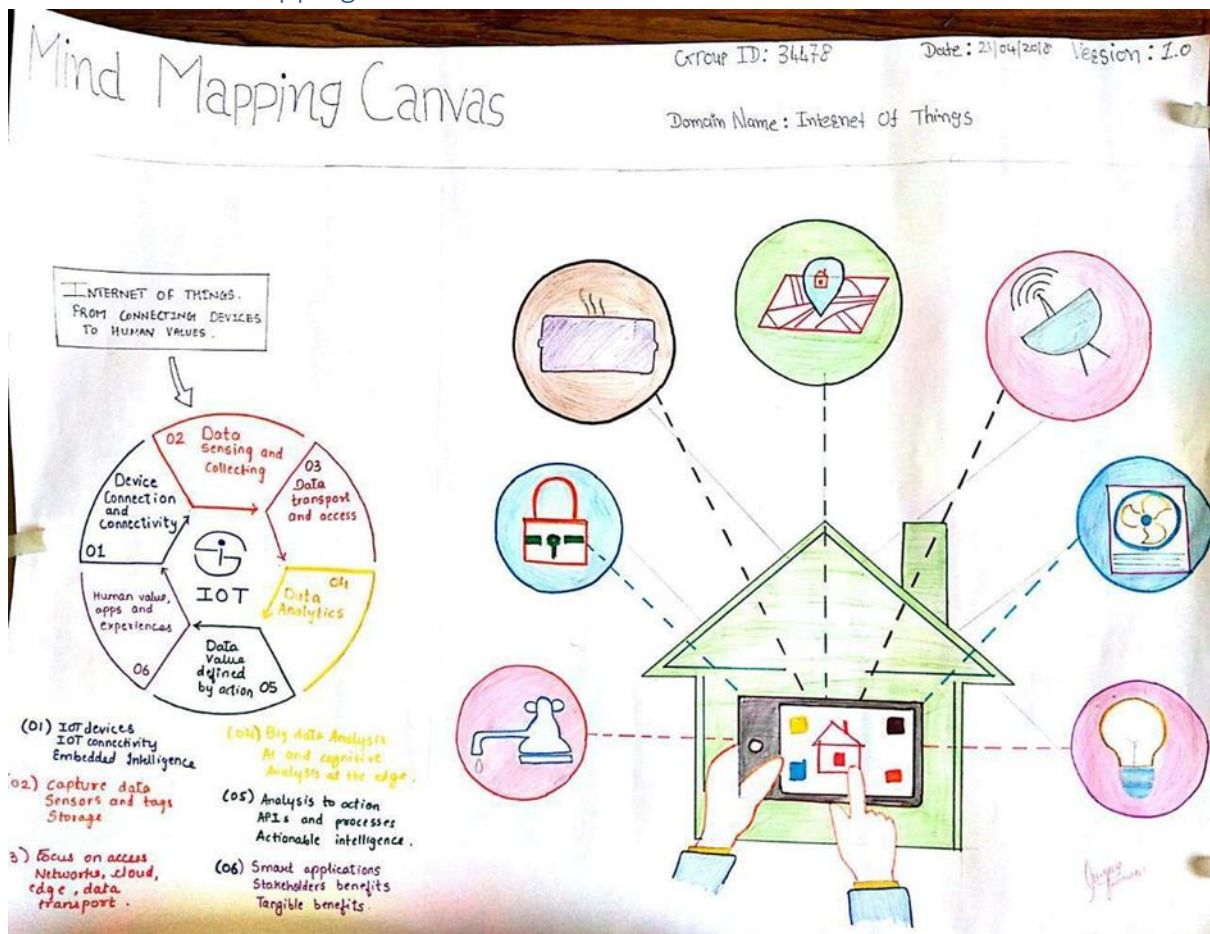 pping
Mind Mapping Canvas
Group ID: 34478
Date: 21/04/2018
Version: 1.0
Domain Name: Internet Of Things
INTERNET OF THINGS.
FROM CONNECTING DEVICES
TO HUMAN VALUES.
02 Data
Sensing and
Collecting
03
Data
transport
and access
Device
Connection
and
Connectivity
01
IOT
04
Data
Analytics
Human value,
apps and
experiences
06
Data
Value
defined
by action 05
(01) IOT devices
IOT connectivity
Embedded Intelligence
02) Capture data
Sensors and tags
Storage
3) Focus on access
Networks, cloud,
edge, data
transport.
(04) Big data Analysis
AI and cognitive
Analysis at the edge.
(05) Analysis to action
APIs and processes
Actionable intelligence.
(06) Smart applications
Stakeholders benefits
Tangible benefits.